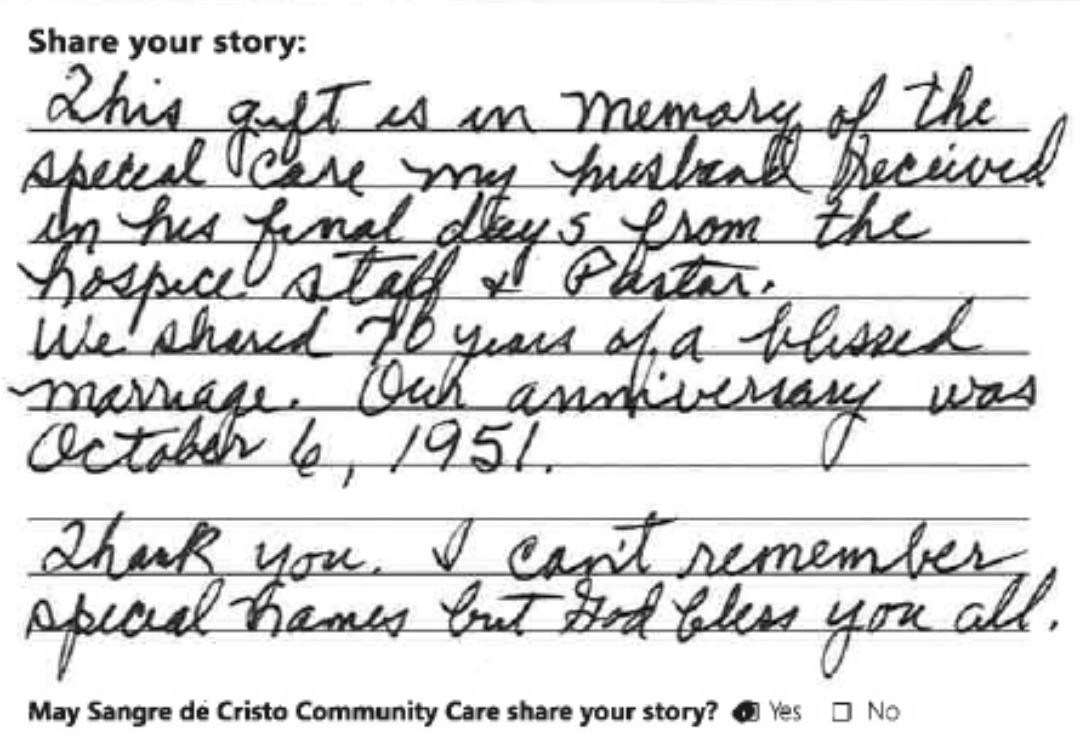 Share your story:
This gift is in memory of the
special care my husband received
in his final days from the
hospice staff & Pastor.
We shared 70 years of a blessed
marriage. Our anniversary was
October 6, 1951.
Thank you. I can't remember
special names but God bless you all.
May Sangre de Cristo Community Care share your story? Yes No